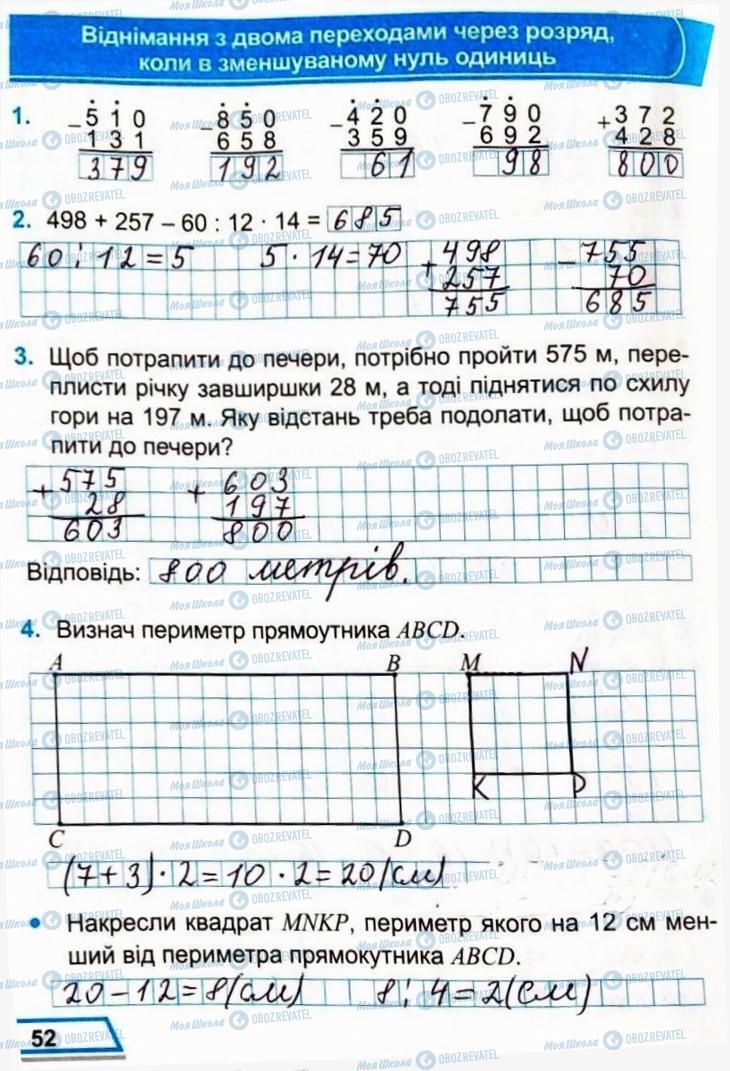 Віднімання з двома переходами через розряд,
коли в зменшуваному нуль одиниць
1. −510 −850 −420 −790 +372
131 658 359 692 428
379 192 61 98 800
2. 498 + 257 – 60 : 12 · 14 = 685
60 : 12 = 5 5 · 14 = 70 + 498 − 755
257 70
755 685
3. Щоб потрапити до печери, потрібно пройти 575 м, пере-
плисти річку завширшки 28 м, а тоді піднятися по схилу
гори на 197 м. Яку відстань треба подолати, щоб потра-
пити до печери?
+ 575 + 603
28 197
603 800
Відповідь: 800 метрів.
4. Визнач периметр прямоутника ABCD.
A B M N
K P
C D
(7+3) · 2 = 10 · 2 = 20 (см)
• Накресли квадрат MNKP, периметр якого на 12 см мен-
ший від периметра прямокутника ABCD.
20 − 12 = 8 (см) 8 : 4 = 2 (см)
52
МояШкола OBOZREVATEL